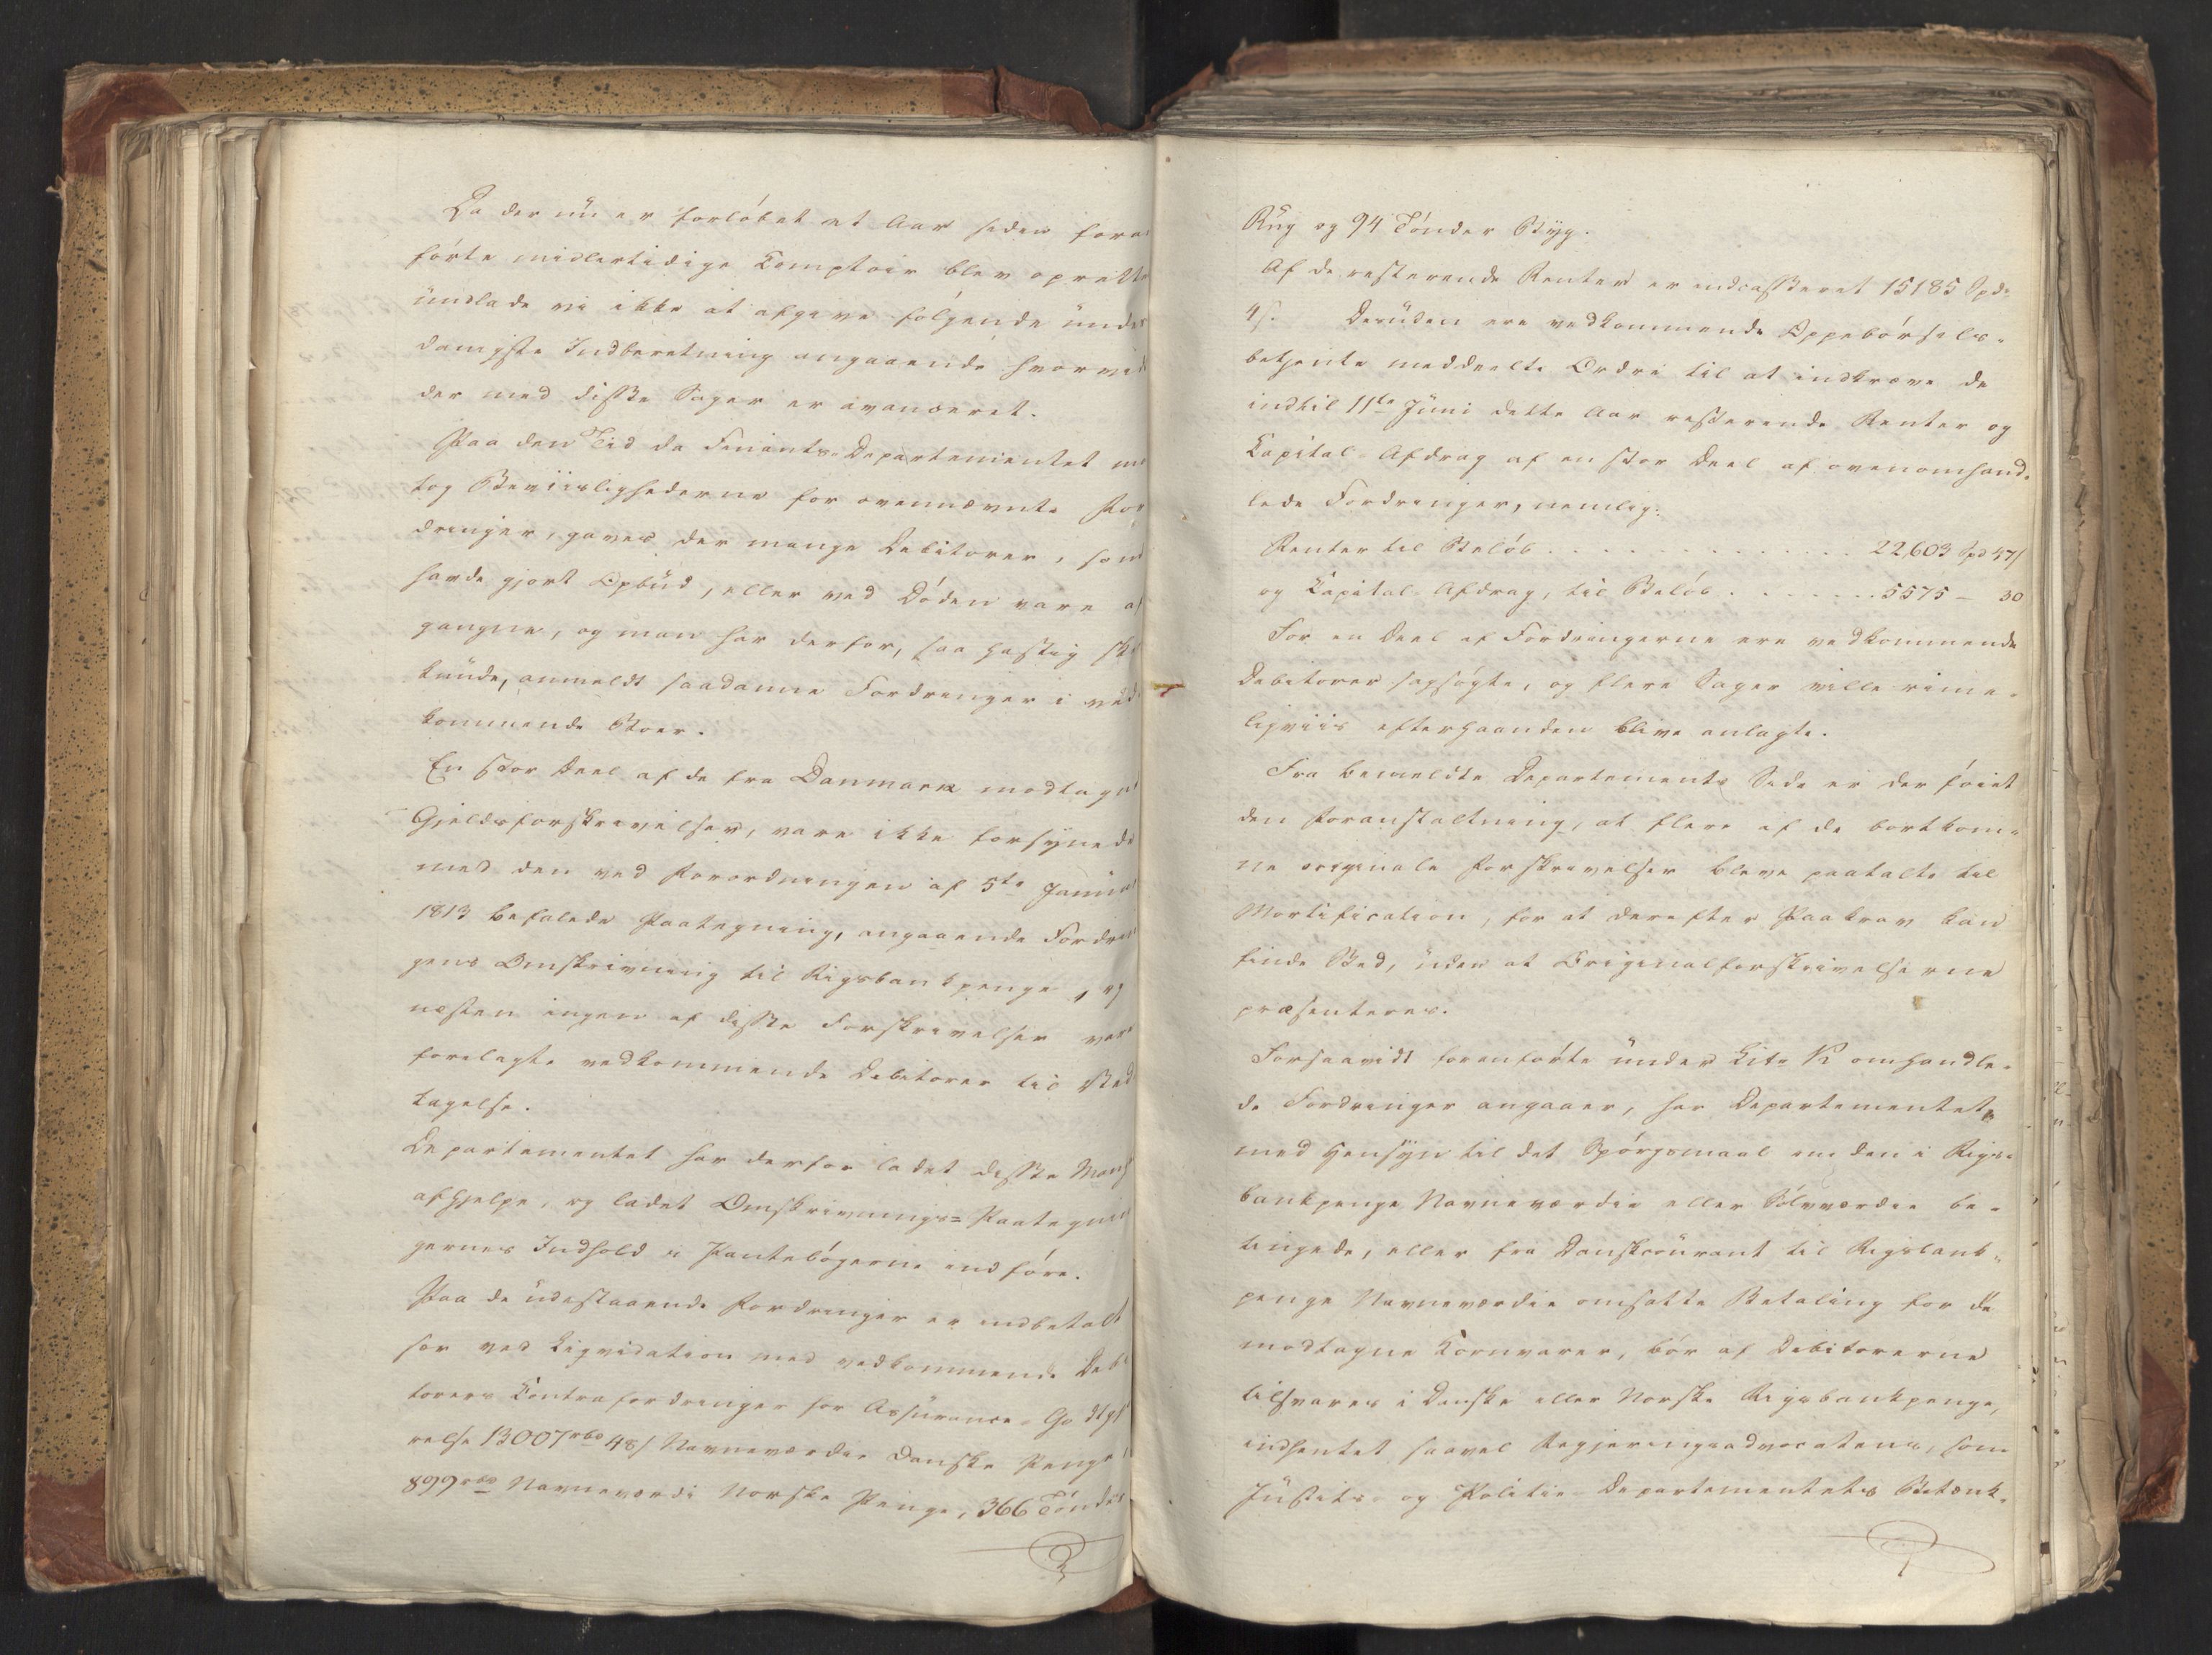 Da der nu er forløbet et Aar siden foran
førte midlertidige Comptoir blev oprettet
undlade vi ikke at afgive følgende under
danigste Indberetning angaaende hvorvidt
der med disse Sager er avanceret.
Paa den Tid da Finants-Departementet mod
tog Beviisligheder for ovennævnte For
dringer, gaves der mange Debitorer, som
havde gjort Opbud, eller ved Døden vare af
gangne, og man har derfor, saa hastig skee
kunde, anmeldt saadanne Fordringer i ved
kommende Boer.
En stor Deel af de fra Danmark modtagne
Gjeldsforskrivelser, vare ikke forsynede
med den ved Forordningen af 5te Januar
1813 befalede Paategning, angaaende Fordrin
gens Omskrivning til Rigsbankpenge, og
næsten ingen af disse Forskrivelser vare
forelagte vedkommende Debitorer til Ved
tagelse.
Departementet har derfor ladet disse Mang
afhjelpe, og ladet Omskrivnings-Paategnin
gernes Indhold i Pantebøgerne indføre.
Paa de udestaaende Fordringer er indbetalt
for ved Liqvidation med vedkommende Debi
torers Contrafordringer for Assurance-Godtgjø
relse 13007 rbd 48 s Navneværdie Danske Penge
899 rbd Navneværdi Norske Penge, 366 Tønder
Rug og 94 Tønder Byg.
Af de resterende Renter er indcasseret 15185 Spd.
4 s. Desuden ere vedkommende Oppebørsels-
betjente meddeelte Ordre til at indkræve de
indtil 11te Juni dette Aar resterende Renter og
Capital-Afdrag af en stor Deel af ovenomhand-
lede Fordringer, nemlig:
Renter til Beløb . . . . . . . . . . . . . . . 22,603 Spd 47 s
og Capital-Afdrag, til Beløb . . . . . . . 5575 – 30
For en Deel af Fordringerne ere vedkommende
Debitorer sagsøgte, og flere Sager ville rime-
ligviis efterhaanden blive anlagte.
Fra bemeldte Departements Side er der føiet
den Foranstaltning, at flere af de bortkom-
ne originale Forskrivelser bleve paatalte til
Mortification, for at derefter Paakrav kan
finde Sted, uden at Originalforskrivelserne
præsenteres.
Forsaavidt foranførte under Litr. omhandle-
de Fordringer angaaer, har Departementet,
med Hensyn til det Spørgsmaal om den i Rigs-
bankpenge Navneværdie eller Sølvværdie be-
tingede, eller fra Danskcourant til Rigsbank-
penge Navneværdie omsatte Betaling for de
modtagne Kornvarer, bør af Debitorerne
tilsvares i Danske eller Norske Rigsbankpenge,
indhentet saavel Regjeringsadvocatens, som
Justits- og Politie-Departementets Betænk-